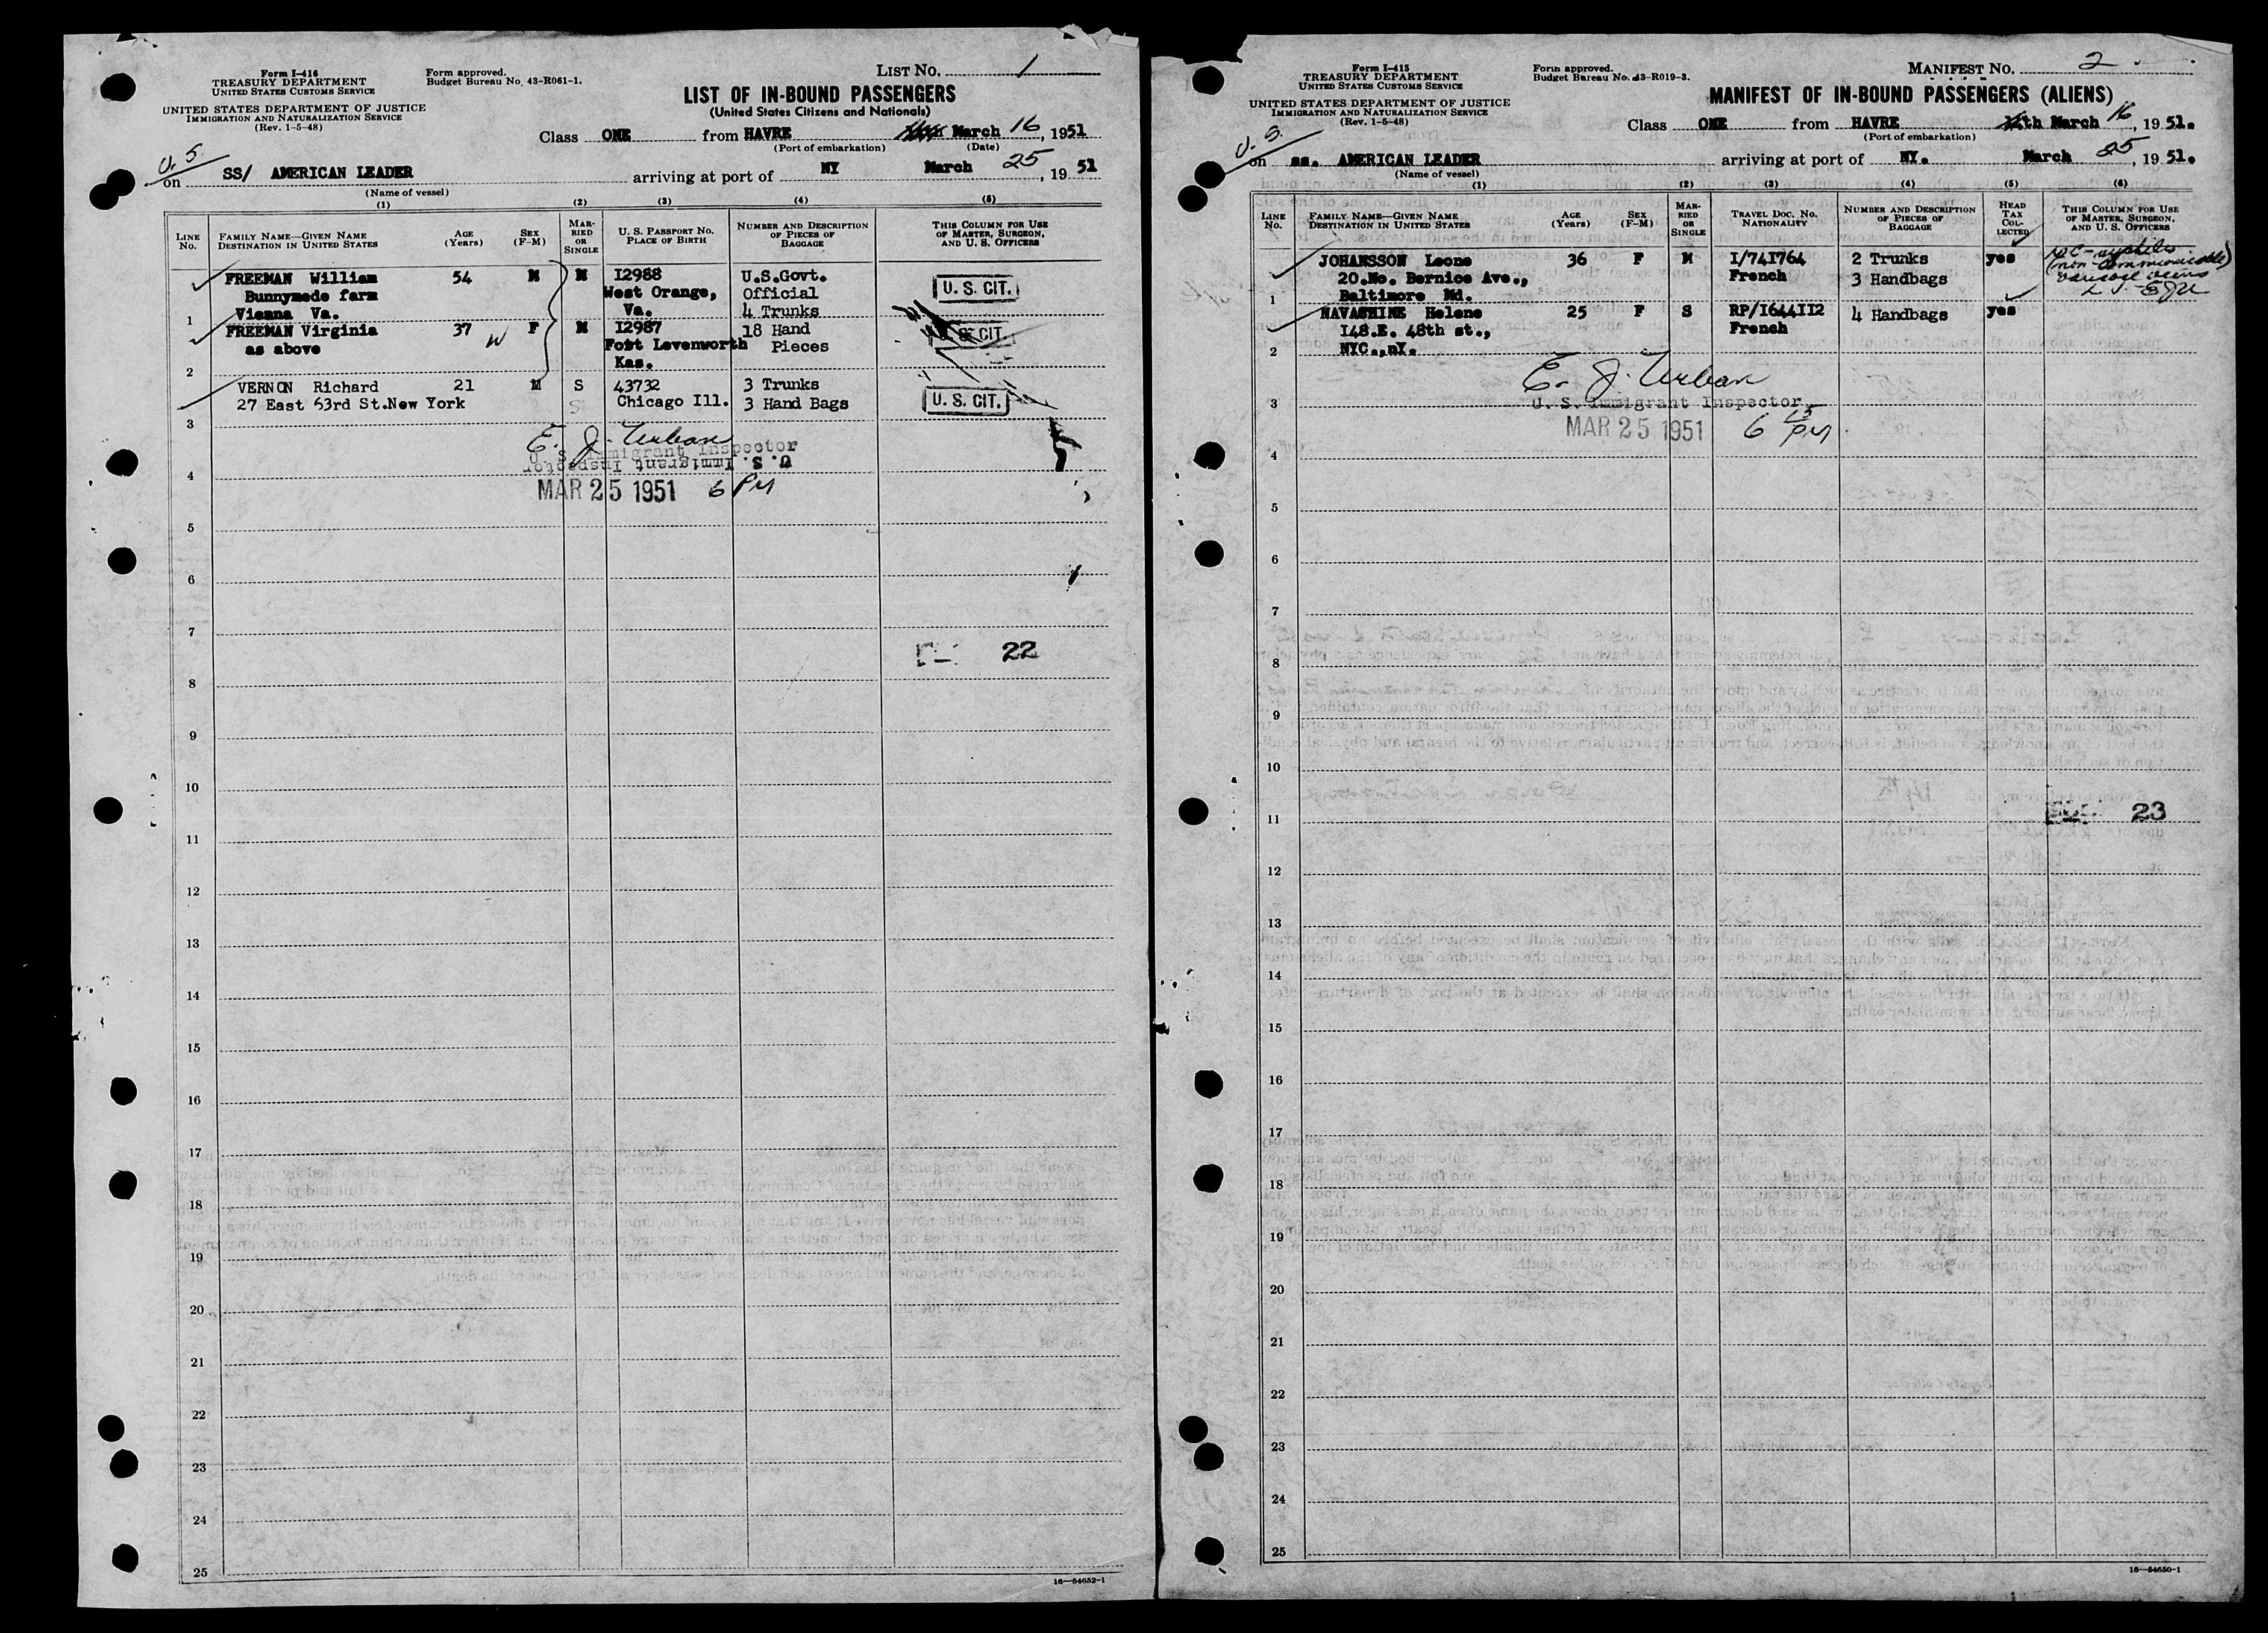 Form I-416
TREASURY DEPARTMENT
UNITED STATES CUSTOMS SERVICE
UNITED STATES DEPARTMENT OF JUSTICE
IMMIGRATION AND NATURALIZATION SERVICE
(Rev. 1-5-48)
Form approved.
Budget Bureau No. 43-R061-1.
LIST No. 1
LIST OF IN-BOUND PASSENGERS
(United States Citizens and Nationals)
Class ONE from HAVRE March 16, 1951
(Port of embarkation) (Date)
U. S.
on SS/ AMERICAN LEADER arriving at port of NY March 25, 1951
(Name of vessel)
(1) (2) (3) (4) (5)
LINE No.
FAMILY NAME—GIVEN NAME
DESTINATION IN UNITED STATES
AGE (Years)
SEX (F-M)
MARRIED OR SINGLE
U. S. PASSPORT No.
PLACE OF BIRTH
NUMBER AND DESCRIPTION OF PIECES OF BAGGAGE
THIS COLUMN FOR USE OF MASTER, SURGEON, AND U. S. OFFICERS
FREEMAN William 54 M M I2988 U.S.Govt.
Bunnymede farm West Orange, Official
1 Vienna Va. Va. 4 Trunks
U. S. CIT.
FREEMAN Virginia 37 W F M I2987 18 Hand
as above Fort Levenworth Pieces
2 Kas.
U. S. CIT.
VERNON Richard 21 M S 43732 3 Trunks
27 East 63rd St.New York S Chicago Ill. 3 Hand Bags
U. S. CIT.
3
E. J. Urban
U. S. Immigrant Inspector
U. S. Immigrant Inspector
4
MAR 25 1951 6 PM
5
6
7
22
8
9
10
11
12
13
14
15
16
17
18
19
20
21
22
23
24
25
16—54652-1
Form I-415
TREASURY DEPARTMENT
UNITED STATES CUSTOMS SERVICE
UNITED STATES DEPARTMENT OF JUSTICE
IMMIGRATION AND NATURALIZATION SERVICE
(Rev. 1-5-48)
Form approved.
Budget Bureau No. 43-R019-3.
MANIFEST No. 2
MANIFEST OF IN-BOUND PASSENGERS (ALIENS)
Class ONE from HAVRE March 16, 1951.
(Port of embarkation)
U. S.
on ss. AMERICAN LEADER arriving at port of NY. March 25, 1951.
(Name of vessel)
(1) (2) (3) (4) (5) (6)
LINE No.
FAMILY NAME—GIVEN NAME
DESTINATION IN UNITED STATES
AGE (Years)
SEX (F-M)
MARRIED OR SINGLE
TRAVEL DOC. No.
NATIONALITY
NUMBER AND DESCRIPTION OF PIECES OF BAGGAGE
HEAD TAX COLLECTED
THIS COLUMN FOR USE OF MASTER, SURGEON, AND U. S. OFFICERS
JOHANSSON Leone 36 F M I/74I764 2 Trunks yes
20.No. Bernice Ave., French 3 Handbags
1 Baltimore Md.
(non-communicable)
varicose veins
EJU
NAVASHINE Helene 25 F S RP/I644II2 4 Handbags yes
I48.E. 48th st., French
2 NYC.,nY.
E. J. Urban
3 U. S. Immigrant Inspector
MAR 25 1951 6 15 PM
4
5
6
7
8
9
10
11 23
12
13
14
15
16
17
18
19
20
21
22
23
24
25
16—54650-1